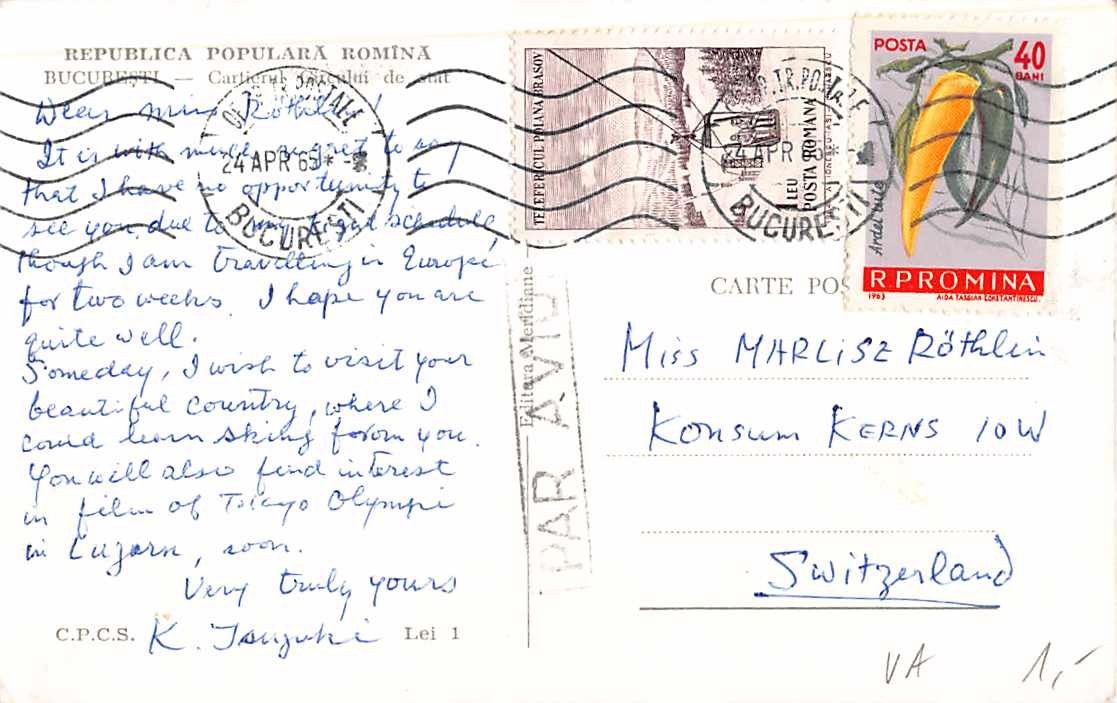 REPUBLICA POPULARĂ ROMÎNĂ
BUCUREȘTI — Cartierul Circului de stat
Dear miss Röthlin!
It is with much regret to say
that I have no opportunity to
see you due to my tight schedule,
though I am travelling in Europe
for two weeks. I hope you are
quite well.
Someday, I wish to visit your
beautiful country, where I
could learn skiing forom you.
You will also find interest
in film of Tokyo Olympi
in Luzern, soon.
Very truly yours
K. Tsuzuki
C.P.C.S.
Lei 1
24 APR 65
BUCUREȘTI
TELEFERICUL POIANA BRAȘOV
1 LEU
POSTA ROMANA
TR. POSTALE
24 APR 65
BUCUREȘTI
POSTA
40
BANI
Ardei iute
R.P.ROMINA
1963
AIDA TASGIAN CONSTANTINESCU
Editura Meridiane
PAR AVION
CARTE POS
Miss MARLISZ Röthlin
Konsum KERNS /OW
Switzerland
VA
1,-